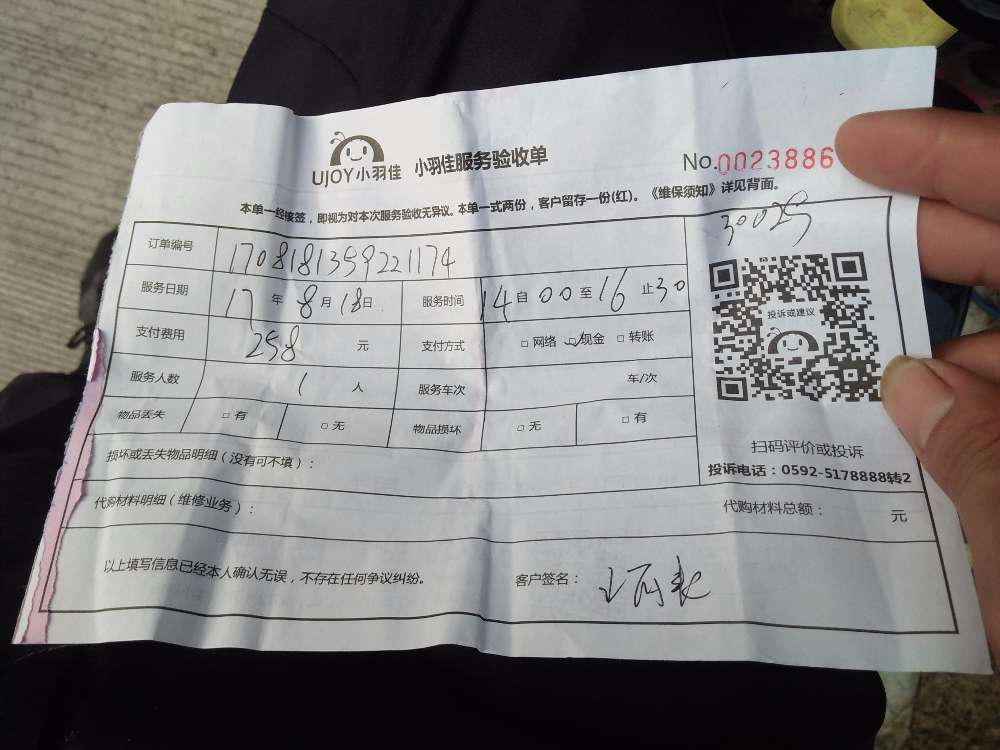 UJOY小羽佳 小羽佳服务验收单 No.0023886
本单一经核签，即视为对本次服务验收无异议。本单一式两份，客户留存一份(红)。《维保须知》详见背面。
30025
订单编号 1708181359221174
服务日期 17年8月18日 服务时间 14自00至16止30
支付费用 258元 支付方式 □网络 ☑现金 □转账
投诉或建议
服务人数 1人 服务车次 车/次
物品丢失 □有 □无 物品损坏 □无 □有
扫码评价或投诉
损坏或丢失物品明细（没有可不填）：
投诉电话：0592-5178888转2
代购材料明细（维修业务）： 代购材料总额： 元
以上填写信息已经本人确认无误，不存在任何争议纠纷。 客户签名：